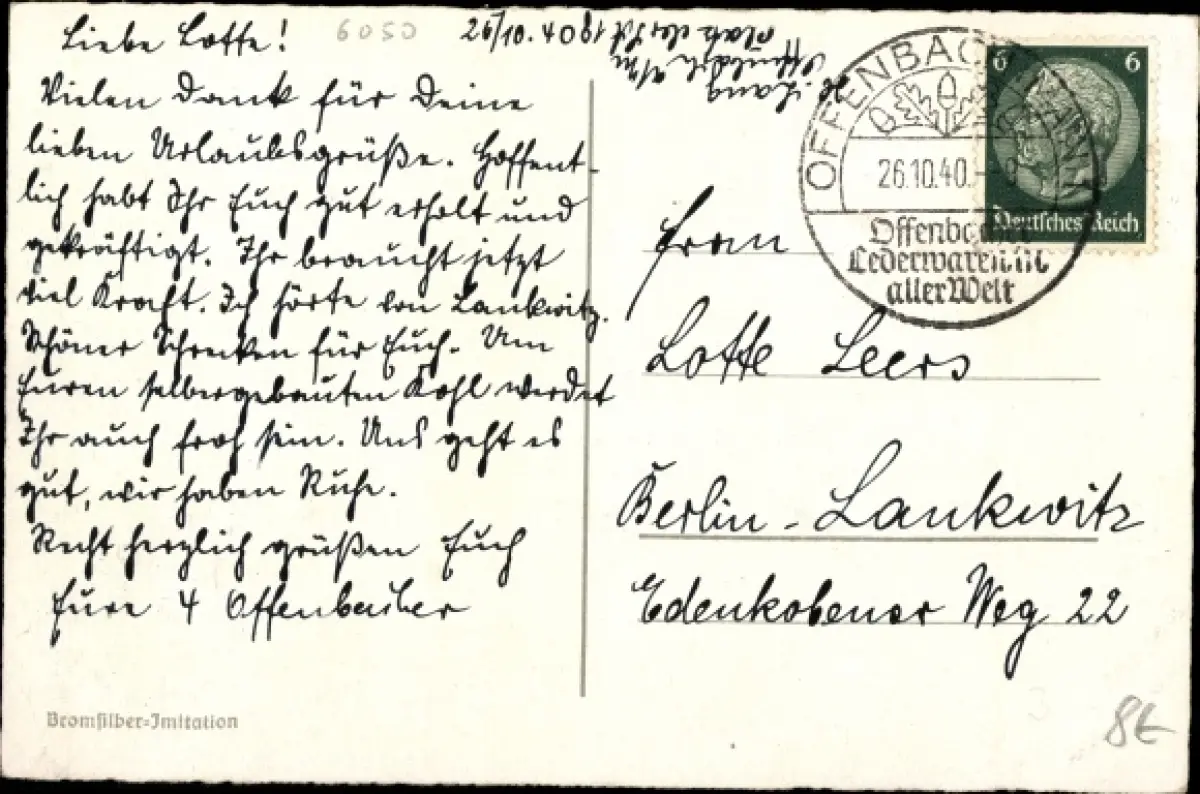 Liebe Lotte!
6050
26/10.40
Vielen Dank für Deine
lieben Urlaubsgrüße. Hoffent-
lich habt Ihr Euch gut erholt und
gekräftigt. Ihr braucht jetzt
viel Kraft. Ich hörte von Lankwitz.
Schöner Schrecken für Euch. Um
Euren selbergebauten Kohl werdet
Ihr auch froh sein. Uns geht es
gut, wir haben Ruhe.
Recht herzlich grüßen Euch
Eure 4 Offenbacher
Bromsilber-Imitation
OFFENBACH
26.10.40.
Offenbacher
Lederwaren in
aller Welt
6 6
Deutsches Reich
Frau
Lotte Leers
Berlin-Lankwitz
Edenkobener Weg 22
8€